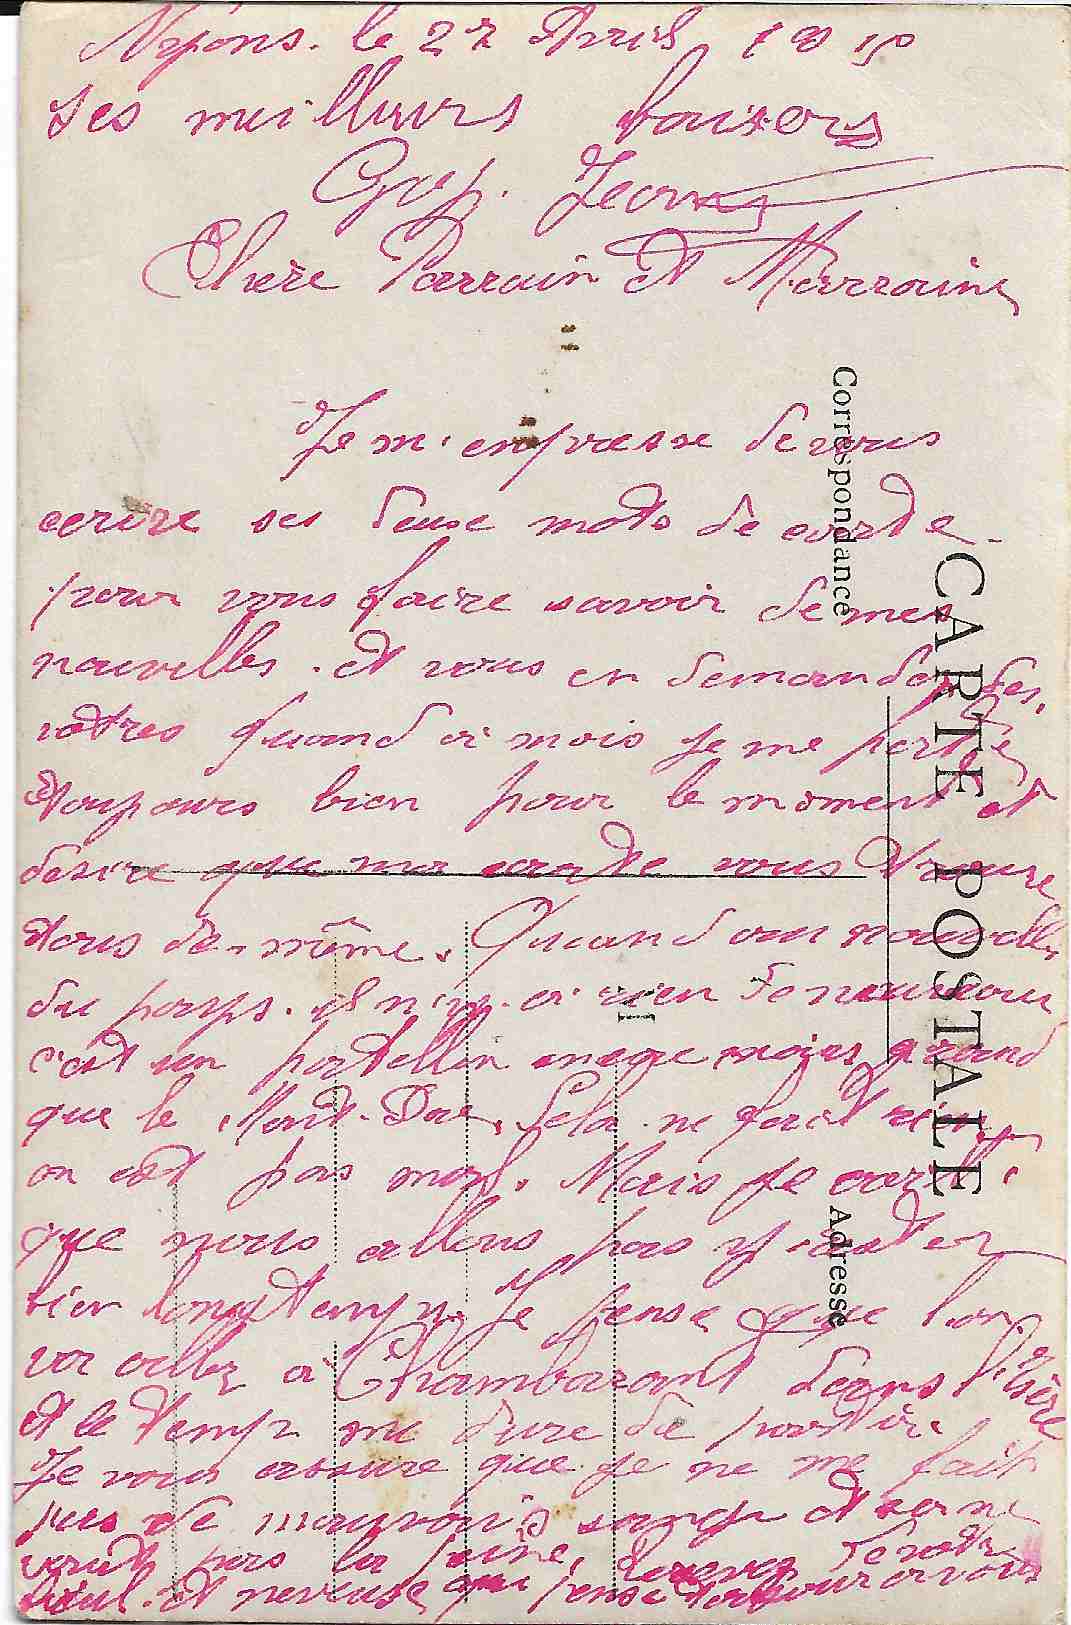 Nyons. le 27 Avril 1915
Ses meilleurs baisers
Jean
Chère Parrain et Marraine
Je m'empresse de vous
ecrire ses deux mots de carte
pour vous faire savoir de mes
nouvelles. et vous en demander des
votres Quand a mois je me porte
toujours bien pour le moment et
desire que ma carte vous trouve
tous de même. Quand aux nouvelle
du pays. il n'y a rien de nouveau
c'est un patellin moins grand
que le Mont-Dore. Sela ne fait rien
on est pas mal. Mais je crois
que nous allons pas y rester
bien longtemp. Je pense que l'on
va aller a Chambarant dans l'Isère
et le temp me dure de partir.
Je vous assure que je ne me fait
pas de mauvais sange et sa ne
vaut pas la peine. Recevez de votre
filleul. et neveuse qui pense toujour a vous
Correspondance
CARTE POSTALE
Adresse